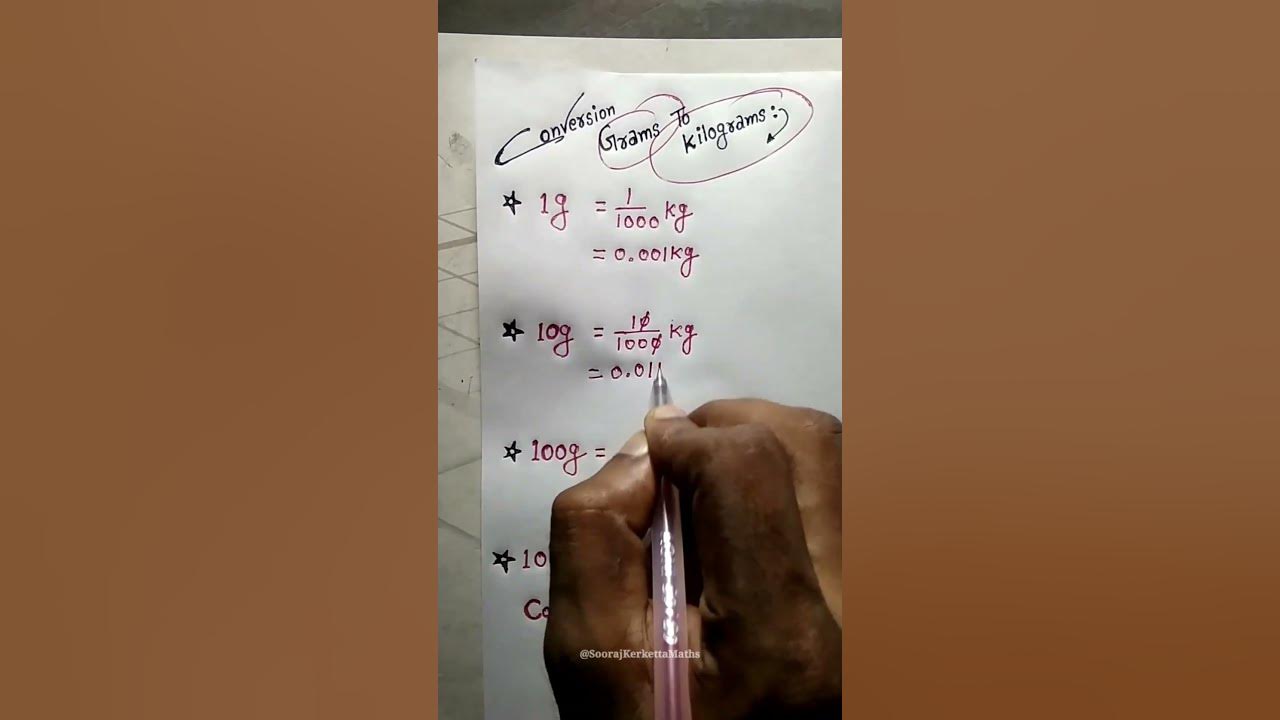 Conversion
Grams To
Kilograms:
1g = 1/1000 kg
= 0.001kg
10g = 10/1000 kg
= 0.01
100g =
10
Co
@SoorajKerkettaMaths